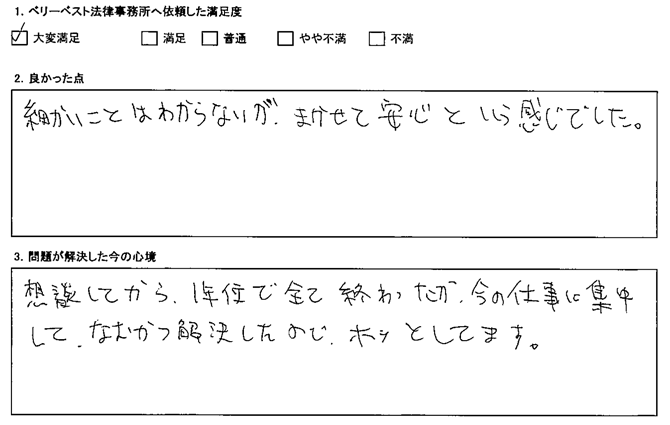 1. ベリーベスト法律事務所へ依頼した満足度
☑ 大変満足 □ 満足 □ 普通 □ やや不満 □ 不満
2. 良かった点
細かいことはわからないが、まかせて安心という感じでした。
3. 問題が解決した今の心境
想談してから、1年位で全て終わったが、今の仕事に集中
して、なおかつ解決したので、ホッとしてます。